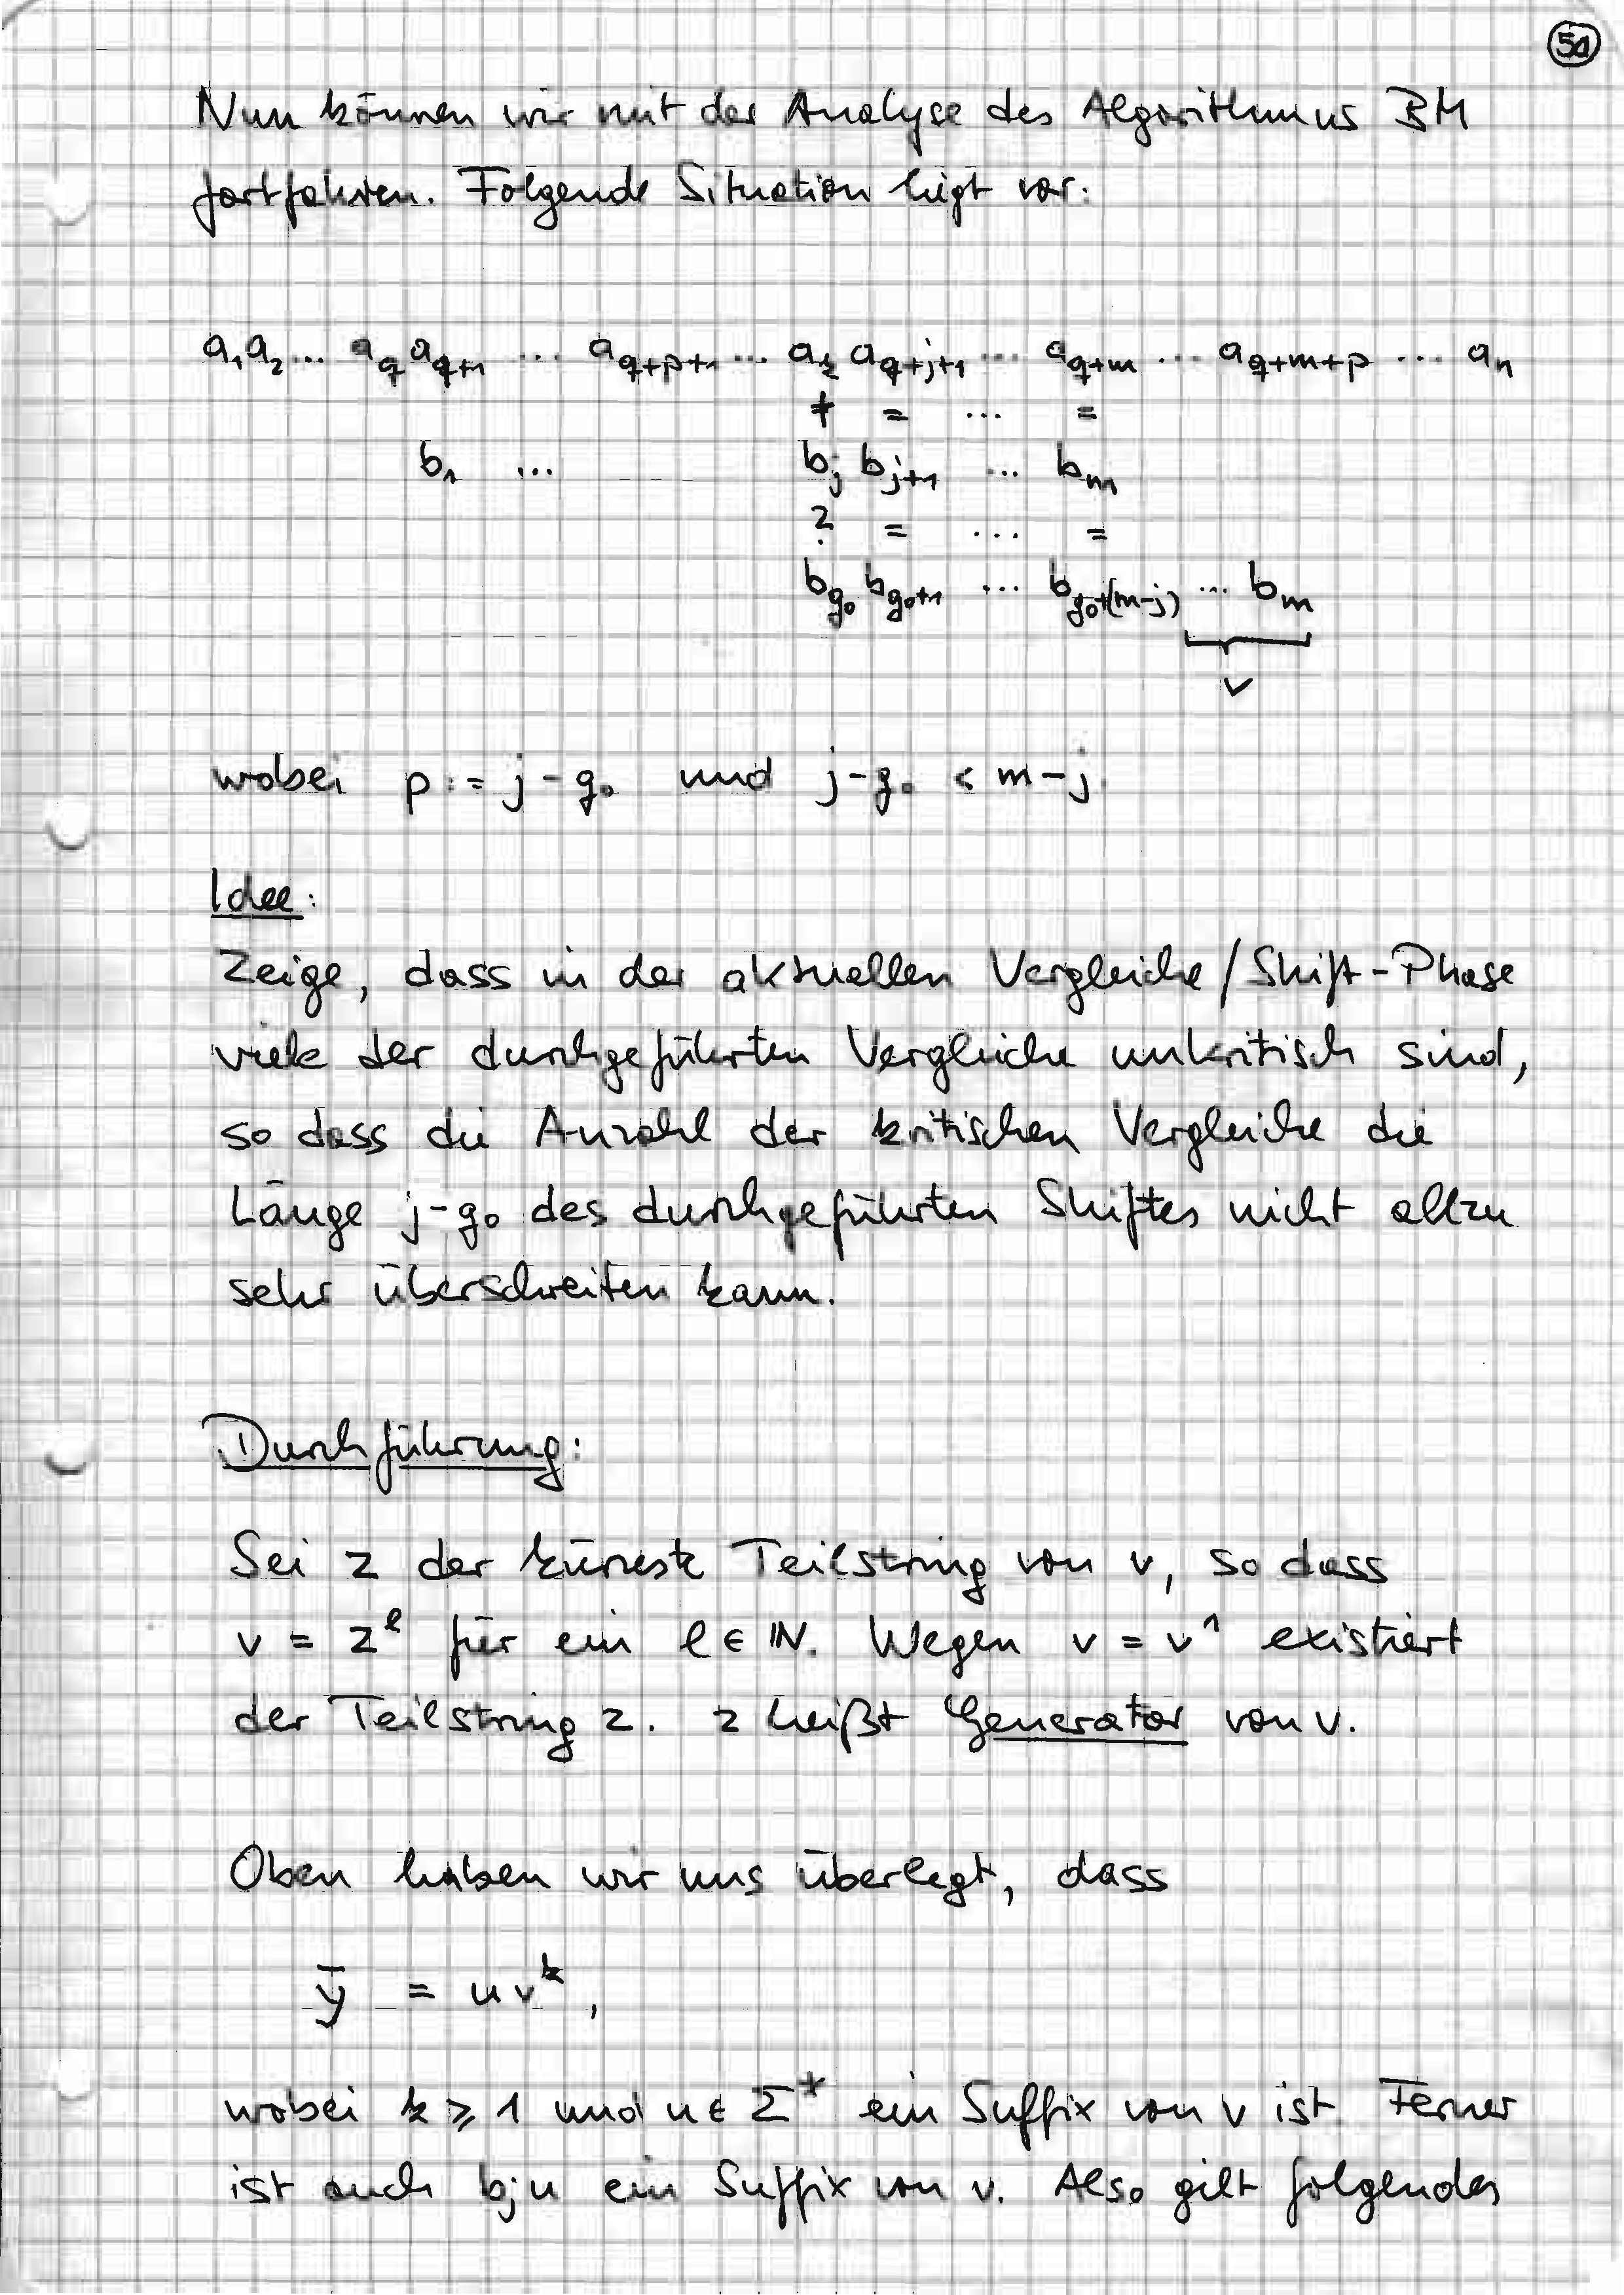 51
Nun können wir mit der Analyse des Algorithmus BM
fortfahren. Folgende Situation liegt vor:
a₁a₂ ... a_q a_{q+1} ... a_{q+p+1} ... a_k a_{q+j+1} ... a_{q+m} ... a_{q+m+p} ... a_n
≠ = ... =
b₁ ... b_j b_{j+1} ... b_m
? = ... =
b_{g₀} b_{g₀+1} ... b_{g₀+(m-j)} ... b_m
v
wobei p := j - g₀ und j - g₀ < m - j.
Idee:
Zeige, dass in der aktuellen Vergleiche/Shift-Phase
viele der durchgeführten Vergleiche unkritisch sind,
so dass die Anzahl der kritischen Vergleiche die
Länge j-g₀ des durchgeführten Shiftes nicht allzu
sehr überschreiten kann.
Durchführung:
Sei z der kürzeste Teilstring von v, so dass
v = z^ℓ für ein ℓ ∈ ℕ. Wegen v = v¹ existiert
der Teilstring z. z heißt Generator von v.
Oben haben wir uns überlegt, dass
ȳ = uv^k,
wobei k ≥ 1 und u ∈ Σ* ein Suffix von v ist. Ferner
ist auch b_j u ein Suffix von v. Also gilt folgendes